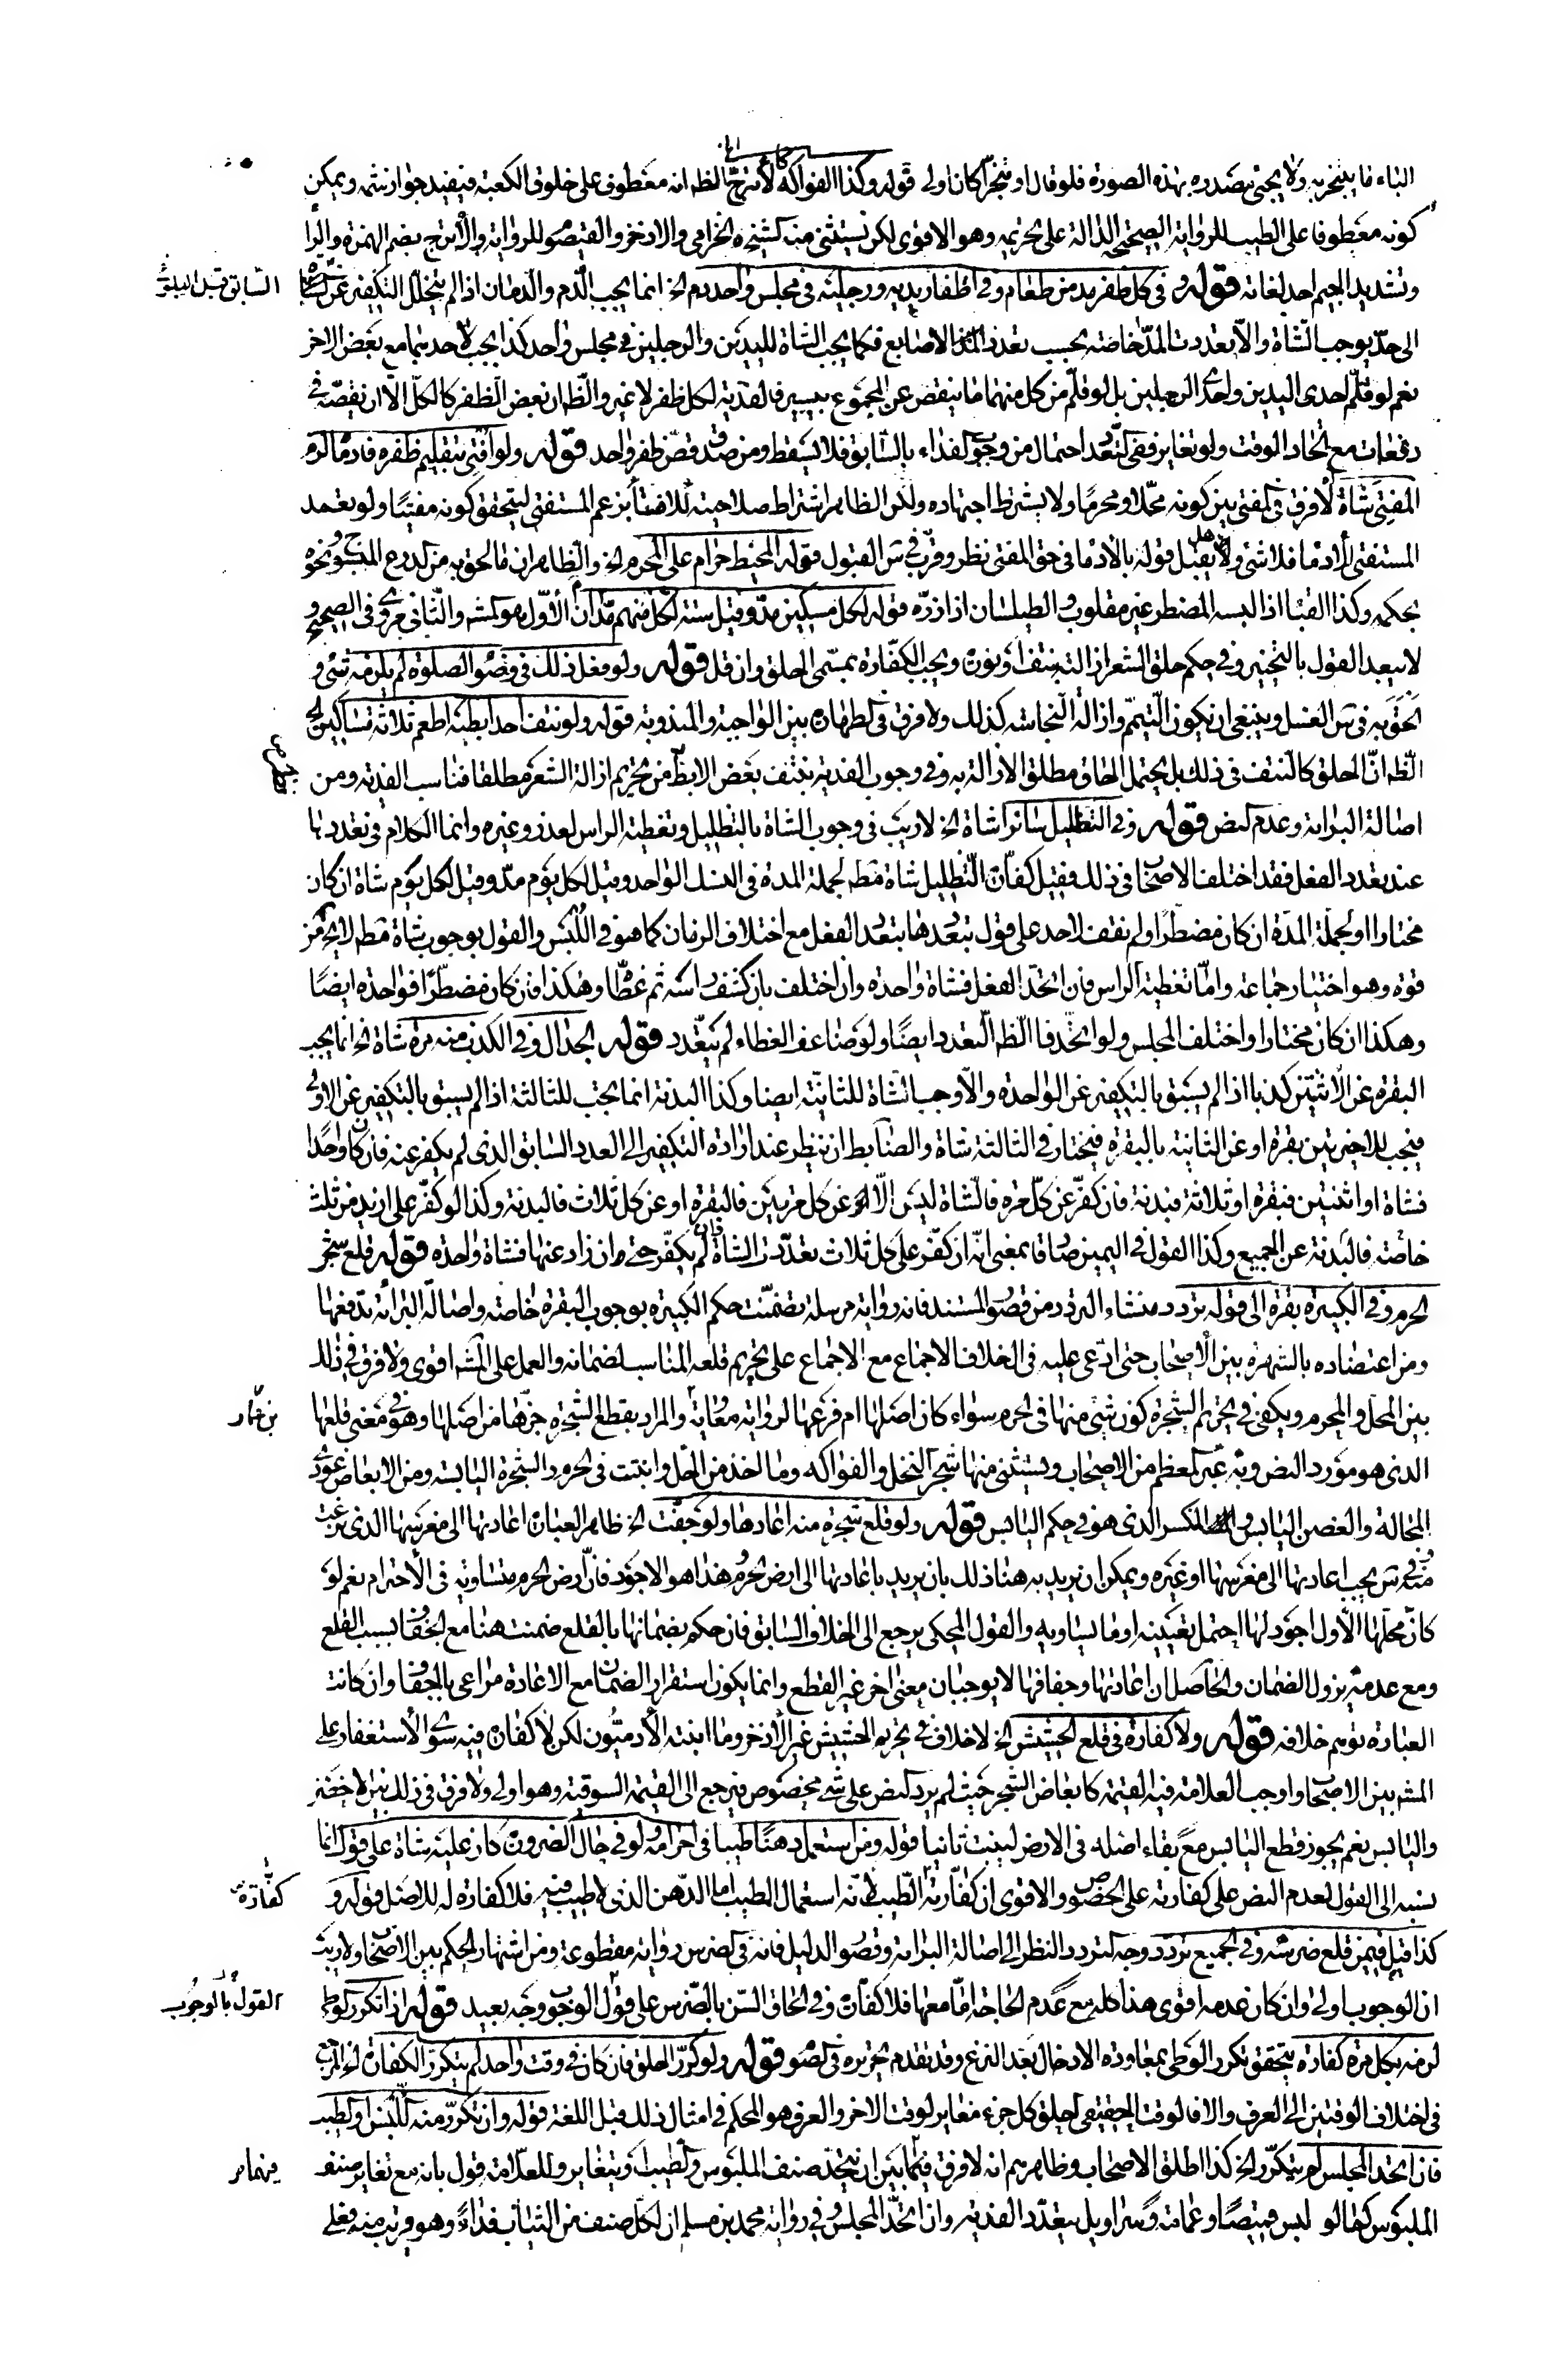 الباء ما يتبخر به ولا يجئ مصدره بهذه الصورة فلو قال او تبخرا كان اولى قوله وكذا الفواكه كالأترج الخ الظ انه معطوف على خلوق الكعبة فيفيد جواز شمه ويمكن
كونه معطوفا على الطيب للرواية الصحيحة الدالة على تحريمه وهو الاقوى لكن يستثنى منه الشيح والخزامى والاذخر والقيصوم للرواية والأترج بضم الهمزة والراء
وتشديد الجيم احد لغاته قوله وفى كل ظفر مد من طعام وفى اظفار يديه ورجليه فى مجلس واحد دم الخ انما يجب الدم والدمان اذا لم يتخلل التكفير عن السابق قبل البلوغ
الى حد يوجب الشاة والا تعددت المد خاصة بحسب تعدد الاصابع فكما يجب الشاة لليدين والرجلين فى مجلس واحد كذا يجب لاحديهما مع بعض الاخر
نعم لو قلم احدى اليدين واحدى الرجلين بل لو قلم من كل منهما ما ينقص عن المجموع بيسير فالفدية لكل ظفر لا غير والظ ان بعض الظفر كالكل الا ان يقصه فى
دفعات مع اتحاد الوقت ولو تغاير ففى التعدد احتمال من وجوب الفداء بالسابق فلا يسقط ومن صدق قص ظفر واحد قوله ولو افتى بتقليم ظفره فادماه لزم
المفتى شاة لا فرق فى المفتى بين كونه محلا او محرما ولا يشترط اجتهاده ولكن الظاهر اشتراط صلاحيته للافتاء بزعم المستفتى ليتحقق كونه مفتيا ولو تعمد
المستفتى الأدماء فلا شئ وهل يقبل قوله بالادماء فى حق المفتى نظر وقرب فى س القبول قوله المخيط حرام على المحرم الخ والظاهر ان ما الحق به من الدرع المنسوج ونحوه
بحكمه وكذا القبا اذا لبسه المضطر غير مقلوب والطيلسان اذا زره قوله لكل مسكين مد وقيل ستة لكل منهم مدان الأول هو المشه والثانى مروى فى الصحيح و
لا يبعد القول بالتخيير وفى حكم حلق الشعر ازالته بنتف او نورة ويجب الكفارة بمسمى الحلق وان قل قوله ولو فعل ذلك فى وضوء الصلوة لم يلزمه شئ و
الحق به فى س الغسل وينبغى ان يكون التيمم وازالة النجاسة كذلك ولا فرق فى الطهارة بين الواجبة والمندوبة قوله ولو نتف احد ابطيه اطعم ثلاثة مساكين الخ
الظ ان الحلق كالنتف فى ذلك بل يحتمل الحاق مطلق الازالة به وفى وجوب الفدية بنتف بعض الابط من تحريم ازالة الشعر مطلقا فناسب الفدية ومن
اصالة البراءة وعدم النص قوله وفى التظليل سائرا شاة الخ لا ريب فى وجوب الشاة بالتظليل وتغطية الراس لعذر وغيره وانما الكلام فى تعددها
عند تعدد الفعل فقد اختلف الاصحاب فى ذلك فقيل كفارة التظليل شاة مط لجملة المدة فى النسك الواحد وقيل لكل يوم مد وقيل لكل يوم شاة ان كان
مختارا او لجملة المدة ان كان مضطرا ولم نقف لاحد على قول بتعددها بتعدد الفعل مع اختلاف الزمان كما هو فى اللبس والقول بوجوب شاة مط لا يخ من
قوة وهو اختيار جماعة واما تغطية الراس فان اتحد الفعل فشاة واحدة وان اختلف بان كشف راسه ثم غطا وهكذا فان كان مضطرا فواحدة ايضا
وهكذا ان كان مختارا واختلف المجلس ولو اتحد فالظ التعدد ايضا ولو ضاعف الغطاء لم يتعدد قوله الجدال وفى الكذب منه مرة شاة الخ انما يجب
البقرة عن الاثنتين كذبا اذا لم يسبق بالتكفير عن الواحدة والا وجب الشاة للثانية ايضا وكذا البدنة انما يجب للثالثة اذا لم يسبق بالتكفير عن الاولى
فيجب للاخيرتين بقرة او عن الثانية بالبقرة فيختار فى الثالثة شاة والضابط ان ينظر عند ارادة التكفير الى العدد السابق الذى لم يكفر عنه فان كان واحدا
فشاة او اثنتين فبقرة او ثلاثة فبدنة فان كفر عن كل مرة فالشاة ليس الا او عن كل مرتين فالبقرة او عن كل ثلاث فالبدنة وكذا لو كفر على ازيد من ثلث
خاصة فالبدنة عن الجميع وكذا القول فى اليمين صادقا بمعنى انه ان كفر على كل ثلاث تعددت الشاة فان لم يكفر حتى زاد عنها فشاة واحدة قوله قلع شجر
الحرم وفى الكبيرة بقرة الى قوله تردد منشاء التردد من قصور المستند فانه رواية مرسلة تضمنت حكم الكبيرة بوجوب البقرة خاصة واصالة البراءة تدفعها
ومن اعتضاده بالشهرة بين الأصحاب حتى ادعى عليه فى الخلاف الاجماع مع الاجماع على تحريم قلعه المناسب لضمانه والعمل على المشه اقوى ولا فرق فى ذلك
بين المحل والمحرم ويكفى فى تحريم الشجرة كون شئ منها فى الحرم سواء كان اصلها ام فرعها لرواية معوية بن عمار والمراد بقطع الشجرة جزها من اصلها وهو فى معنى قلعها
الذى هو مورد النص وبه عبر المعظم من الاصحاب ويستثنى منها شجر النخل والفواكه وما اخذ من الحل وانبتت فى الحرم والشجرة اليابسة ومن الابعاض عودى
المحالة والغصن اليابس والمنكسر الذى هو فى حكم اليابس قوله ولو قلع شجرة منه اعادها ولو جفت الخ ظاهر العبارة اعادتها الى مغرسها الذى نزعت
منه وفى س يجب اعادتها الى مغرسها او غيره ويمكن ان يريد به هنا ذلك بان يريد باعادتها الى ارض الحرم وهذا هو الاجود فان ارض الحرم متساوية فى الأحترام نعم لو
كان محلها الأول اجود لها احتمل تعيينه او ما يساويه والقول المحكى يرجع الى الخلاف السابق فان حكم بضمانها بالقلع ضمنت هنا مع الجفاف بسبب القلع
ومع عدمه يزول الضمان والحاصل ان اعادتها وجفافها لا يوجبان معنى اخر غير القطع وانما يكون استقرار الضمان مع الاعادة مراعى بالجفاف وان كانت
العبارة توهم خلافه قوله ولا كفارة فى قلع الحشيش الخ لا خلاف فى تحريم الحشيش غير الأذخر وما انبته الأدميون لكن لا كفارة فيه سوى الأستغفار على
المشه بين الاصحاب واوجب العلامة فيه القيمة كابعاض الشجر حيث لم يرد النص على شئ مخصوص فيرجع الى القيمة السوقية وهو اولى ولا فرق فى ذلك بين الاخضر
واليابس نعم يجوز قطع اليابس مع بقاء اصله فى الارض لينبت ثانيا قوله ومن استعمل دهنا طيبا فى احرامه ولو فى حال الضرورة كان عليه شاة على قول انما
نسبه الى القول لعدم النص على كفارته على الخصوص والاقوى ان كفارته كفارة الطيب لانه استعمال الطيب اما الدهن الذى لا طيب فيه فلا كفارة له للاصل قوله و
كذا قيل فيمن قلع ضرسه وفى الجميع تردد وجه التردد النظر الى اصالة البراءة وقصور الدليل فانه فى الضرس رواية مقطوعة ومن اشتهار الحكم بين الاصحاب ولا ريب
ان القول بالوجوب اولى وان كان عدمه اقوى هذا كله مع عدم الحاجة اما معها فلا كفارة وفى الحاق السن بالضرس على قول الوجوب وجه بعيد قوله اذا تكرر الوطى
لزمه بكل مرة كفارة يتحقق تكرر الوطى بمعاودة الادخال بعد النزع وقد تقدم تحريره فى الصوم قوله ولو كرر الحلق فان كان فى وقت واحد لم يتكرر الكفارة الخ المرجع
فى اختلاف الوقتين الى العرف والا فالوقت الحقيقى لحلق كل جزء مغاير لوقت الاخر والعرف هو المحكم فى امثال ذلك قبل اللغة قوله وان تكرر منه اللبس او الطيب
فان اتحد المجلس لم يتكرر الخ كذا اطلق الاصحاب وظاهرهم انه لا فرق فيهما بين ان يتحد صنف الملبوس والطيب او يتغاير وللعلامة قول بانه مع تغاير صنف
الملبوس كما لو لبس قميصا وعمامة وسراويل يتعدد الفدية وان اتحد المجلس وفى رواية محمد بن مسلم ان لكل صنف من الثياب فداء وهو قريب منه فعلى